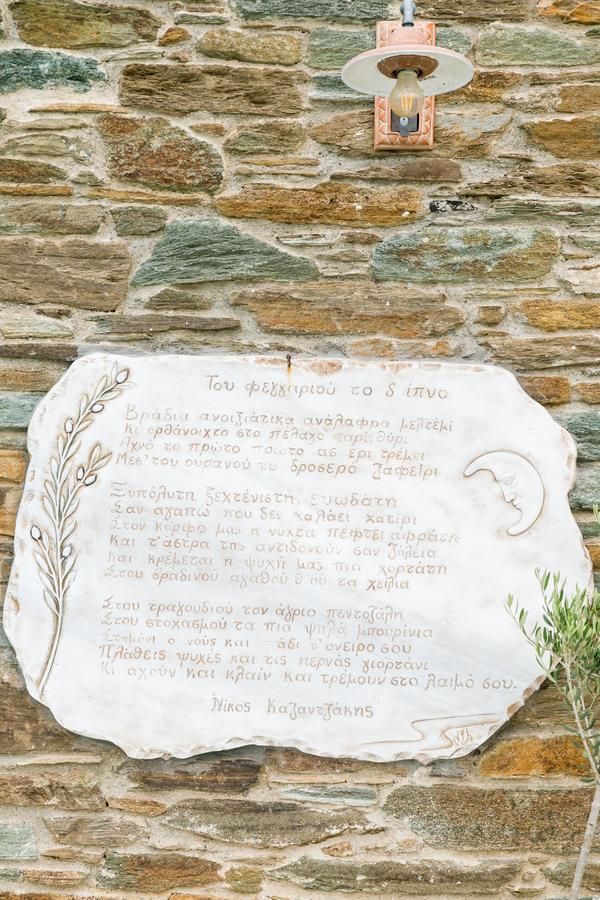 Του φεγγαριού το δείπνο
Βράδια ανοιξιάτικα ανάλαφρο μελτέμι
Κι ορθάνοιχτο στο πέλαχο παραθύρι
Αχνό το πρώτο πρώτο αστέρι τρέμει
Μες' του ουρανού το δροσερό ζαφείρι
Ξυπόλυτη ξεχτένιστη, ευωδάτη
Σαν αχαπώ που δεν χαλάει χατίρι
Στον κόρφο μας η νύχτα πέφτει αφράτη
Και τ' άστρα της αντιδονούν σαν ζήλεια
Και κρέμεται η ψυχή μας πια χορτάτη
Στου βραδινού αγαθού θεού τα χείλια
Στου τραγουδιού τον άγριο πεντοζάλη
Στου στοχασμού τα πιο ψηλά μπουρίνια
Στημόνι ο νους και άδι τ' όνειρο σου
Πλάθεις ψυχές και τις περνάς γιορτάνι
Κι αχούν και κλαίν και τρέμουν στο λαιμό σου.
Νίκος Καζαντζάκης